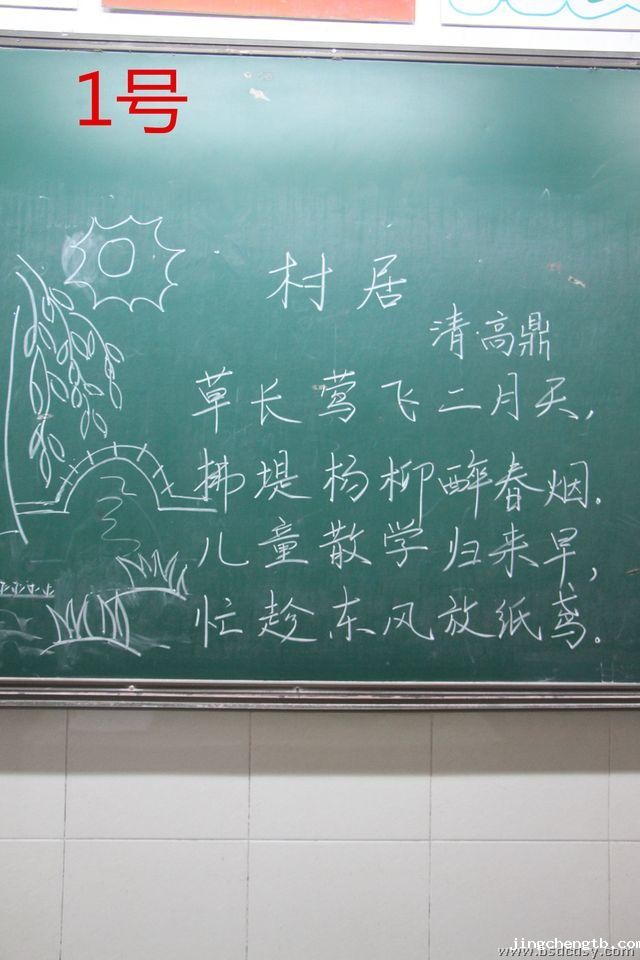 1号
村居
清·高鼎
草长莺飞二月天,
拂堤杨柳醉春烟.
儿童散学归来早,
忙趁东风放纸鸢.
jingchengtb.com
www.bsdcdsy.com